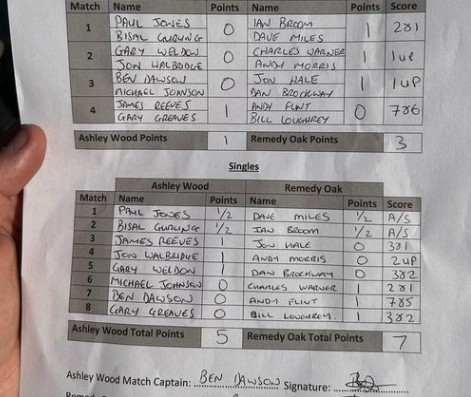 Match Name Points Name Points Score
1 PAUL JONES 0 IAN BROOM 1 2&1
BISAL GURUNG DAVE MILES
2 GARY WELDON 0 CHARLES WARNER 1 1UP
JON WALBRIDGE ANDY MORRIS
3 BEN DAWSON 0 JON HALE 1 1UP
MICHAEL JOHNSON DAN BROCKWAY
4 JAMES REEVES 1 ANDY FLINT 0 7&6
GARY GREAVES BILL LOUGHREY
Ashley Wood Points 1 Remedy Oak Points 3
Singles
Ashley Wood Remedy Oak
Match Name Points Name Points Score
1 PAUL JONES 1/2 DAVE MILES 1/2 A/S
2 BISAL GURUNG 1/2 IAN BROOM 1/2 A/S
3 JAMES REEVES 1 JON HALE 0 3&1
4 JON WALBRIDGE 1 ANDY MORRIS 0 2UP
5 GARY WELDON 1 DAN BROCKWAY 0 3&2
6 MICHAEL JOHNSON 0 CHARLES WARNER 1 2&1
7 BEN DAWSON 0 ANDY FLINT 1 7&5
8 GARY GREAVES 0 BILL LOUGHREY 1 3&2
Ashley Wood Total Points 5 Remedy Oak Total Points 7
Ashley Wood Match Captain: BEN DAWSON Signature: